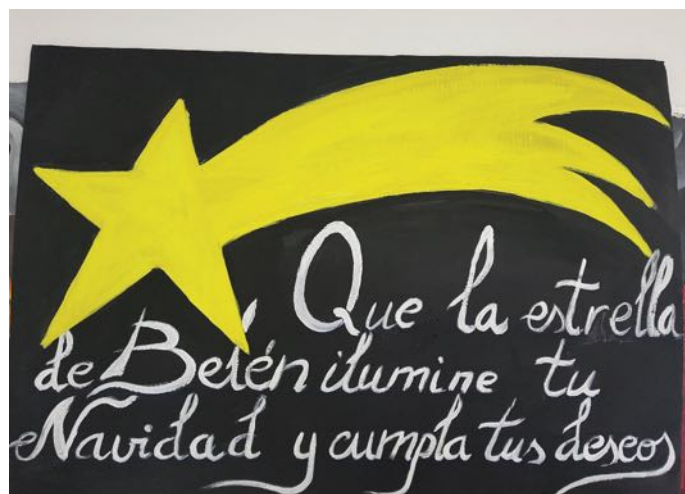 Que la estrella
de Belén ilumine tu
Navidad y cumpla tus deseos